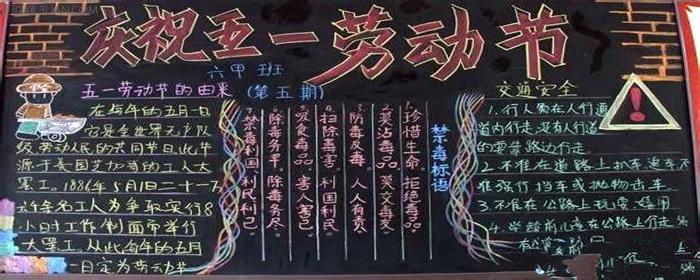 庆祝五一劳动节
六甲班
五一劳动节的由来
(第五期)
在每年的五月一日
它是全世界无产阶
级、劳动人民的共同节日,此节
源于美国芝加哥的工人大
罢工。1886年5月1日二十一万
六千余名工人为争取实行8
小时工作制而举行
大罢工,从此每年的五月
一日定为劳动节
禁毒标语
1.珍惜生命,拒绝毒品。
2.莫沾毒品,莫交毒友。
3.防毒反毒,人人有责。
4.扫除毒害,利国利民。
5.吸食毒品,害人害己。
6.除毒务早,除毒务尽。
7.禁毒利国、利民、利己。
交通安全
1.行人须在人行道
道内行走,没有人行道
的要靠路边行走。
2.不准在道路上扒车、追车、不
准强行拦车或抛物击车
3.不准在公路上玩耍、嬉闹
4.学龄前儿童在公路上行走